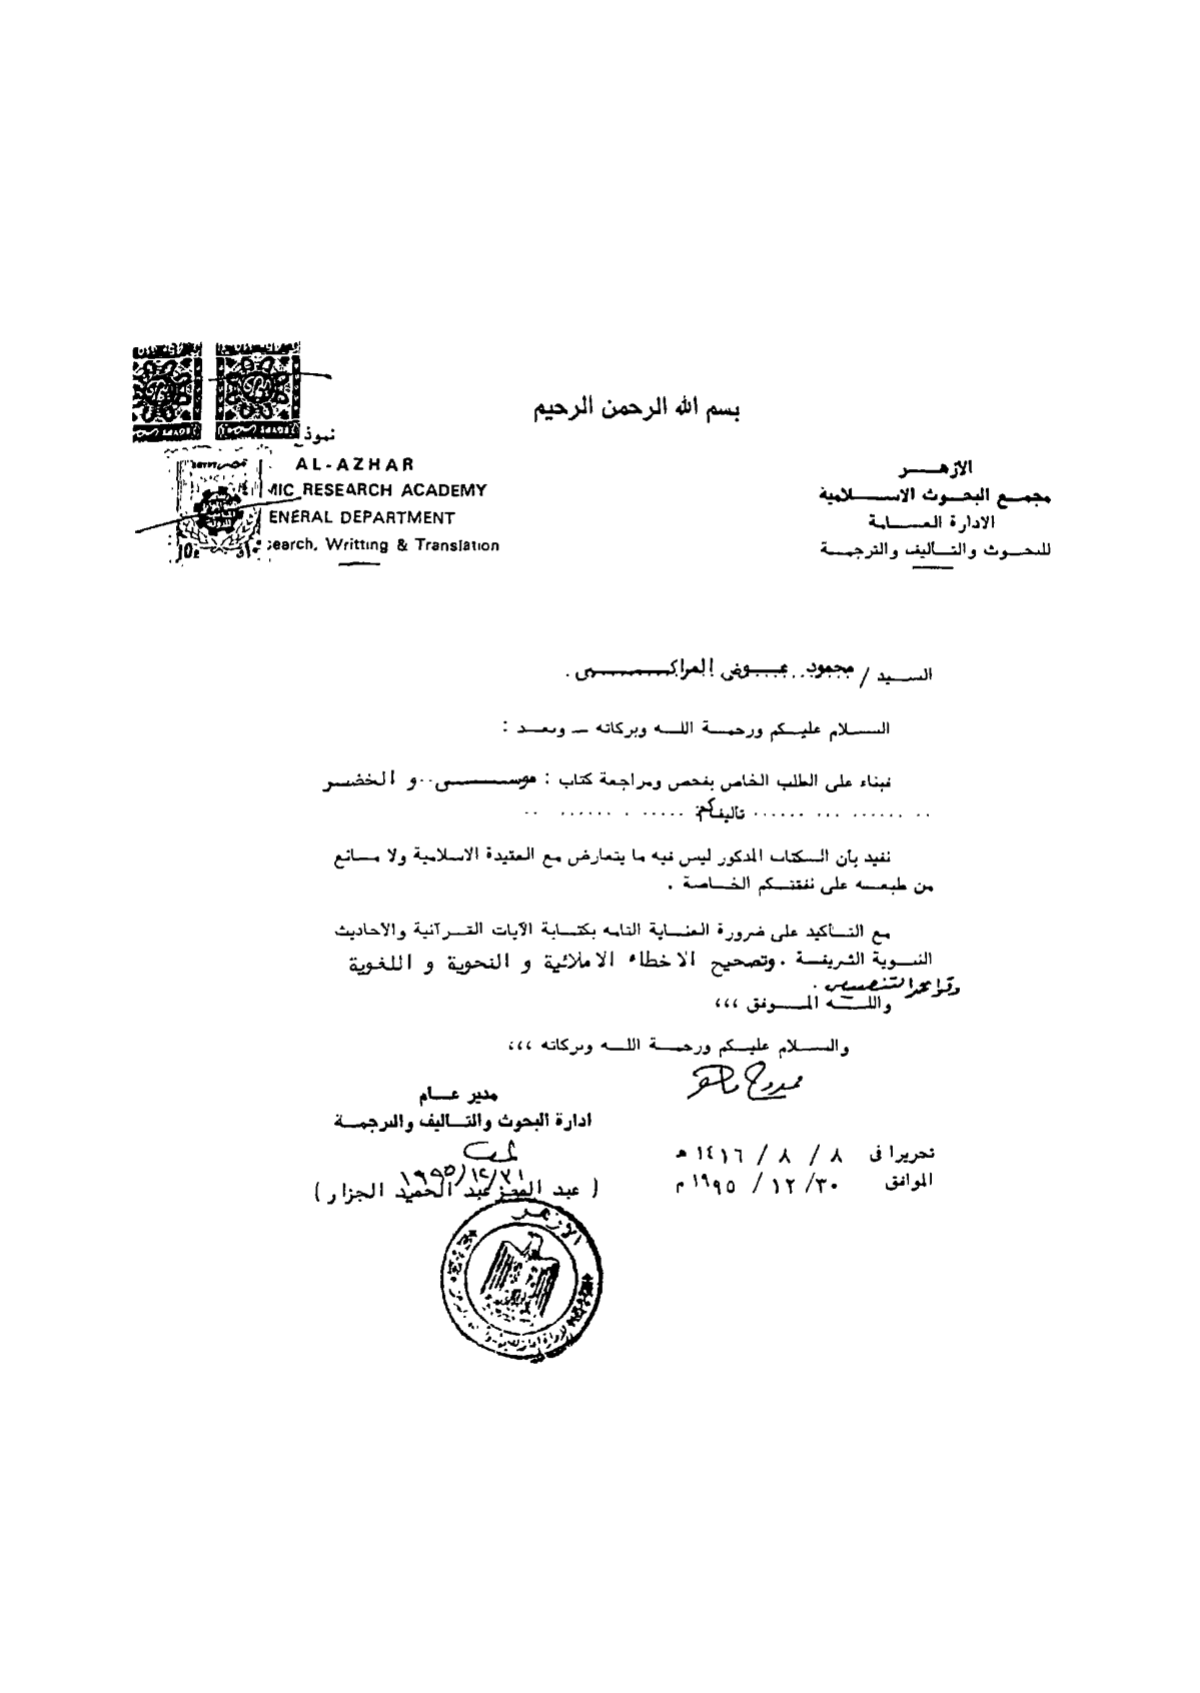 بسم الله الرحمن الرحيم
نموذ
AL-AZHAR
MIC RESEARCH ACADEMY
ENERAL DEPARTMENT
search, Writting & Translation
الازهــر
مجمع البحوث الاسلامية
الادارة العامة
للبحوث والتأليف والترجمة
السيد / محمود عوض المراكبى .
السلام عليكم ورحمة الله وبركاته ـ وبعد :
فبناء على الطلب الخاص بفحص ومراجعة كتاب : موسى و الخضر
تأليفكم
نفيد بأن الكتاب المذكور ليس فيه ما يتعارض مع العقيدة الاسلامية ولا مانع
من طبعه على نفقتكم الخاصة .
مع التأكيد على ضرورة العناية التامة بكتابة الآيات القرآنية والاحاديث
النبوية الشريفة . وتصحيح الاخطاء الاملائية و النحوية و اللغوية
والله الموفق ،،،
والسلام عليكم ورحمة الله وبركاته ،،،
مدير عام
ادارة البحوث والتأليف والترجمة
١٩٩٥/١٢/٣١
( عبد المعز عبد الحميد الجزار )
تحريرا فى ٨ / ٨ / ١٤١٦ هـ
الموافق ٣٠/ ١٢ / ١٩٩٥ م
الازهر